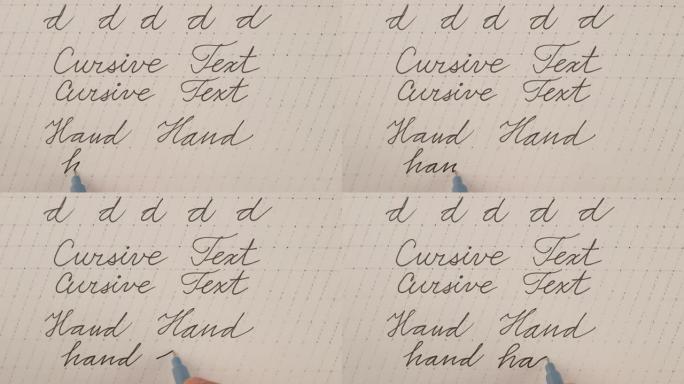 d d d d d
Cursive Text
Cursive Text
Hand Hand
h
d d d d d
Cursive Text
Cursive Text
Hand Hand
han
d d d d d
Cursive Text
Cursive Text
Hand Hand
hand
d d d d d
Cursive Text
Cursive Text
Hand Hand
hand ha